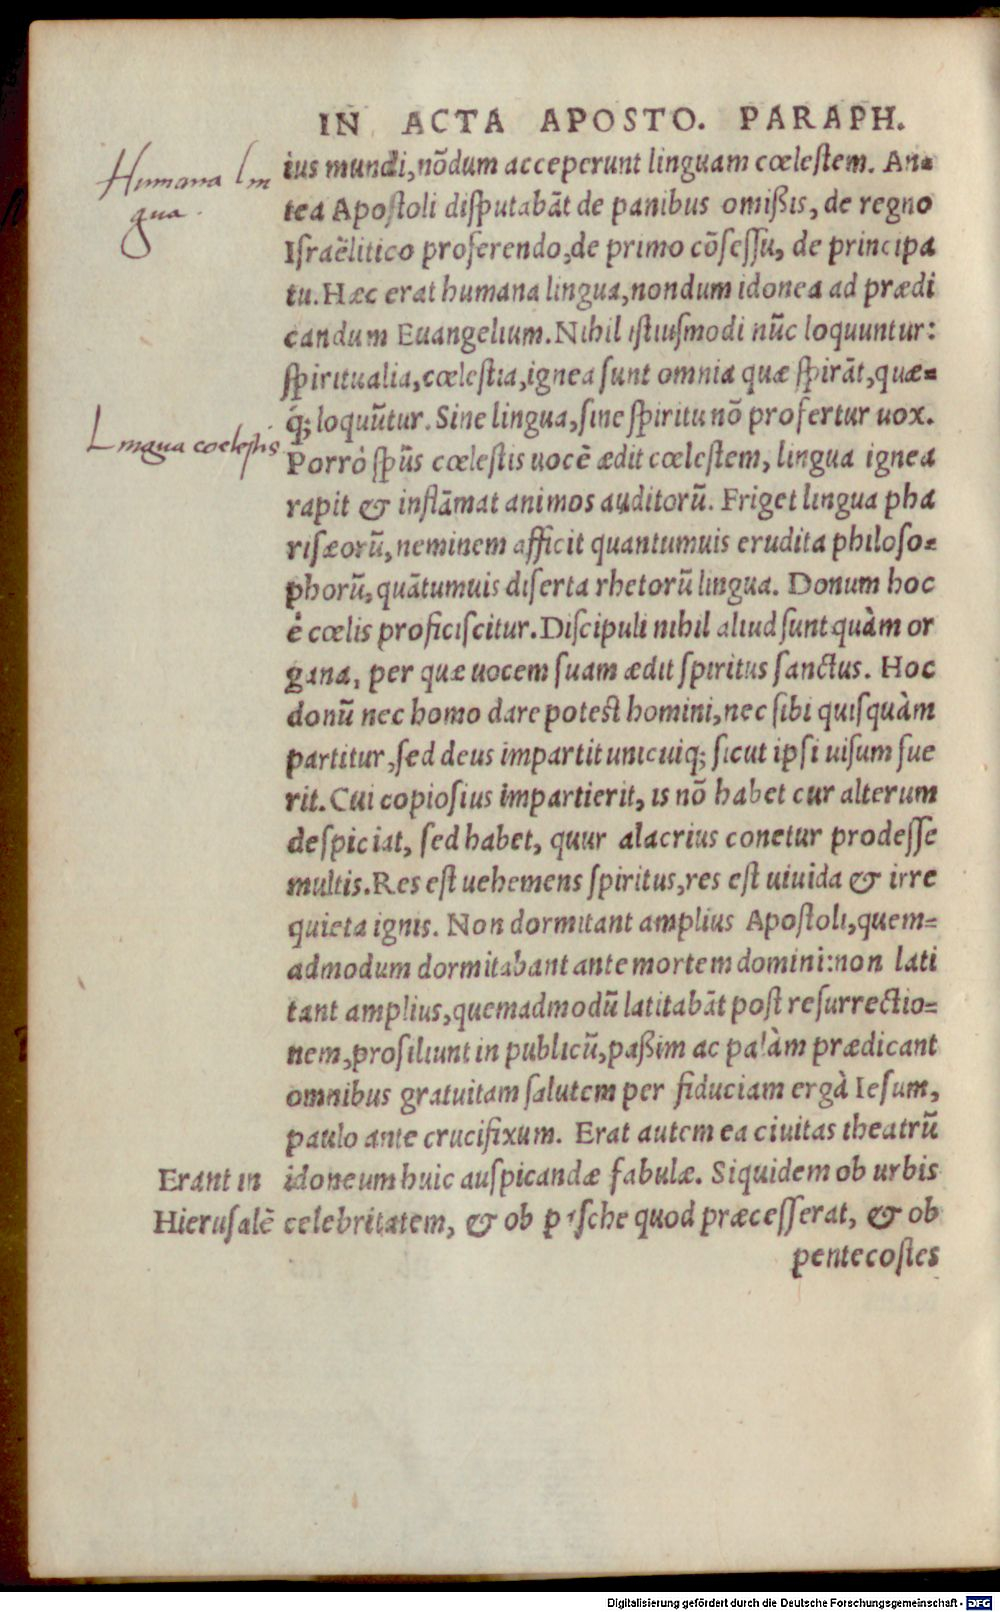 IN ACTA APOSTO. PARAPH.
Humana lin
gua.
ius mundi, nōdum acceperunt linguam cœlestem. An=
tea Apostoli disputabāt de panibus omißis, de regno
Israëlitico proferendo, de primo cōsessu, de principa
tu. Hæc erat humana lingua, nondum idonea ad prædi
candum Euangelium. Nihil istiusmodi nūc loquuntur:
spiritualia, cœlestia, ignea sunt omnia quæ spirāt, quæ=
q́; loquūtur. Sine lingua, sine spiritu nō profertur uox.
Lingua coelestis
Porrò sp̄us cœlestis uocē ædit cœlestem, lingua ignea
rapit & inflāmat animos auditorū. Friget lingua pha
risæorū, neminem afficit quantumuis erudita philoso=
phorū, quātumuis diserta rhetorū lingua. Donum hoc
è cœlis proficiscitur. Discipuli nihil aliud sunt quàm or
gana, per quæ uocem suam ædit spiritus sanctus. Hoc
donū nec homo dare potest homini, nec sibi quisquàm
partitur, sed deus impartit unicuiq; sicut ipsi uisum fue
rit. Cui copiosius impartierit, is nō habet cur alterum
despiciat, sed habet, quur alacrius conetur prodesse
multis. Res est uehemens spiritus, res est uiuida & irre
quieta ignis. Non dormitant amplius Apostoli, quem=
admodum dormitabant ante mortem domini: non lati
tant amplius, quemadmodū latitabāt post resurrectio=
nem, prosiliunt in publicū, paßim ac palàm prædicant
omnibus gratuitam salutem per fiduciam ergà Iesum,
paulo ante crucifixum. Erat autem ea ciuitas theatrū
Erant in
idoneum huic auspicandæ fabulæ. Siquidem ob urbis
Hierusalē
celebritatem, & ob pasche quod præcesserat, & ob
pentecostes
Digitalisierung gefördert durch die Deutsche Forschungsgemeinschaft - DFG